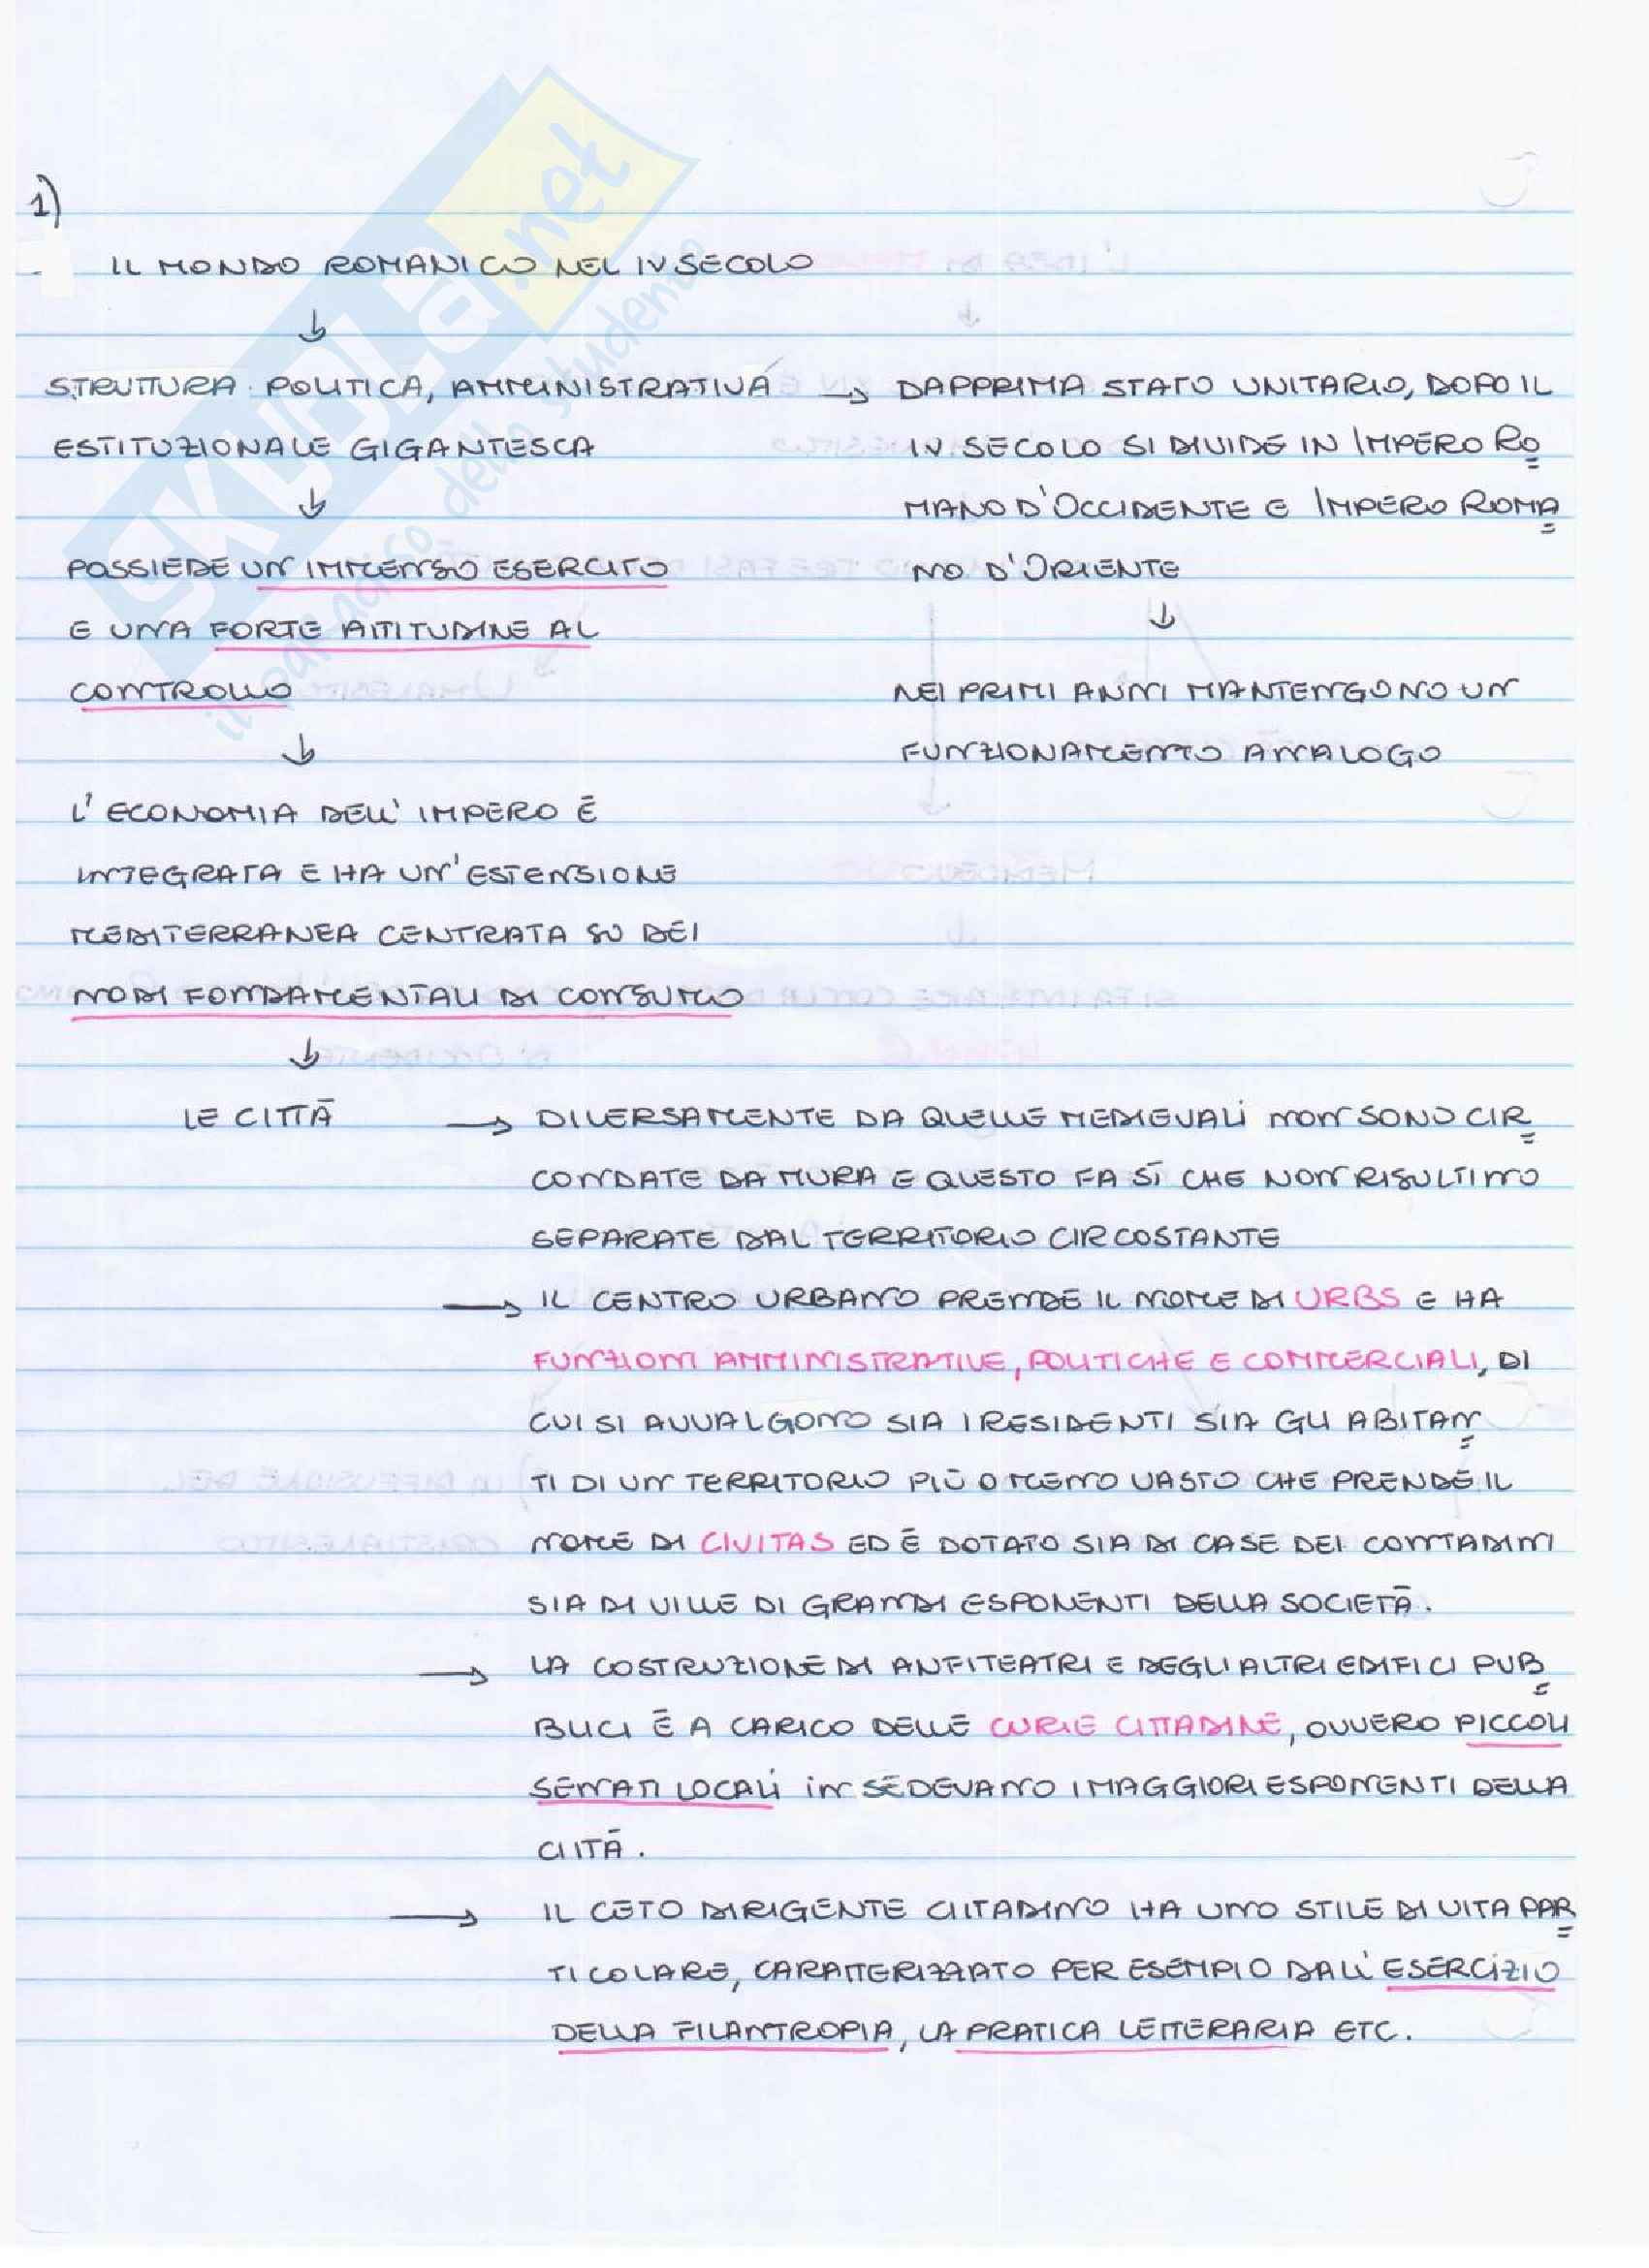 1)
IL MONDO ROMANICO NEL IV SECOLO
↓
STRUTTURA POLITICA, AMMINISTRATIVA
E ISTITUZIONALE GIGANTESCA
↓
POSSIEDE UN IMMENSO ESERCITO
E UNA FORTE ATTITUDINE AL
CONTROLLO
↓
L'ECONOMIA DELL'IMPERO È
INTEGRATA E HA UN'ESTENSIONE
MEDITERRANEA CENTRATA SU DEI
NODI FONDAMENTALI DI CONSUMO
↓
→ DAPPRIMA STATO UNITARIO, DOPO IL
IV SECOLO SI DIVIDE IN IMPERO RO
MANO D'OCCIDENTE E IMPERO ROMA
NO D'ORIENTE
↓
NEI PRIMI ANNI MANTENGONO UN
FUNZIONAMENTO ANALOGO
LE CITTÀ → DIVERSAMENTE DA QUELLE MEDIEVALI NON SONO CIR
CONDATE DA MURA E QUESTO FA SÌ CHE NON RISULTINO
SEPARATE DAL TERRITORIO CIRCOSTANTE
→ IL CENTRO URBANO PRENDE IL NOME DI URBS E HA
FUNZIONI AMMINISTRATIVE, POLITICHE E COMMERCIALI, DI
CUI SI AVVALGONO SIA I RESIDENTI SIA GLI ABITAN
TI DI UN TERRITORIO PIÙ O MENO VASTO CHE PRENDE IL
NOME DI CIVITAS ED È DOTATO SIA DI CASE DEI CONTADINI
SIA DI VILLE DI GRANDI ESPONENTI DELLA SOCIETÀ.
→ LA COSTRUZIONE DI ANFITEATRI E DEGLI ALTRI EDIFICI PUB
BLICI È A CARICO DELLE CURIE CITTADINE, OVVERO PICCOLI
SENATI LOCALI IN SEDEVANO I MAGGIORI ESPONENTI DELLA
CITTÀ.
→ IL CETO DIRIGENTE CITTADINO HA UNO STILE DI VITA PAR
TICOLARE, CARATTERIZZATO PER ESEMPIO DALL'ESERCIZIO
DELLA FILANTROPIA, LA PRATICA LETTERARIA ETC.
SKUOLA.net
il paradiso dello studente